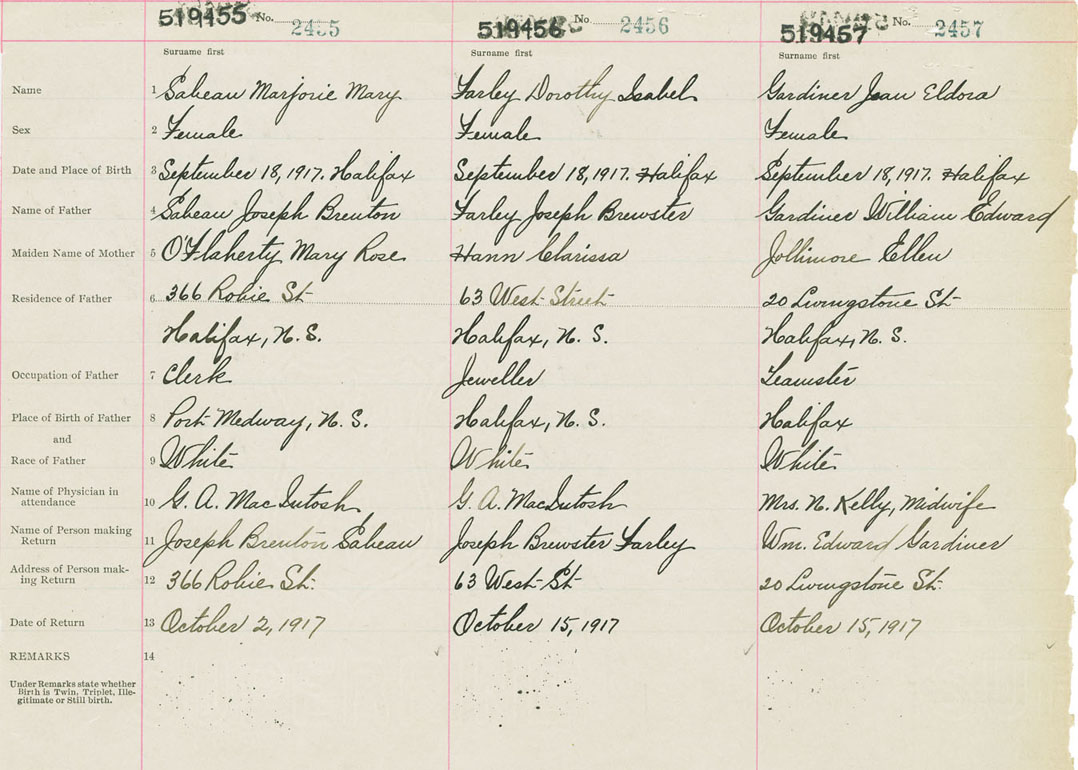 519455 No. 2455 519456 No. 2456 519457 No. 2457
Surname first Surname first Surname first
Name 1 Sabeau Marjorie Mary Farley Dorothy Isabel Gardiner Jean Eldora
Sex 2 Female Female Female
Date and Place of Birth 3 September 18, 1917. Halifax September 18, 1917. Halifax September 18, 1917. Halifax
Name of Father 4 Sabeau Joseph Brenton Farley Joseph Brewster Gardiner William Edward
Maiden Name of Mother 5 O'Flaherty Mary Rose Hann Clarissa Jollimore Ellen
Residence of Father 6 366 Robie St 63 West Street 20 Livingstone St
Halifax, N. S. Halifax, N. S. Halifax, N. S.
Occupation of Father 7 Clerk Jeweller Teamster
Place of Birth of Father 8 Port Medway, N. S. Halifax, N. S. Halifax
and
Race of Father 9 White White White
Name of Physician in
attendance 10 G. A. MacIntosh G. A. MacIntosh Mrs. N. Kelly, Midwife
Name of Person making
Return 11 Joseph Brenton Sabeau Joseph Brewster Farley Wm. Edward Gardiner
Address of Person mak-
ing Return 12 366 Robie St. 63 West St 20 Livingstone St.
Date of Return 13 October 2, 1917 October 15, 1917 October 15, 1917
REMARKS 14
Under Remarks state whether
Birth is Twin, Triplet, Ille-
gitimate or Still birth.